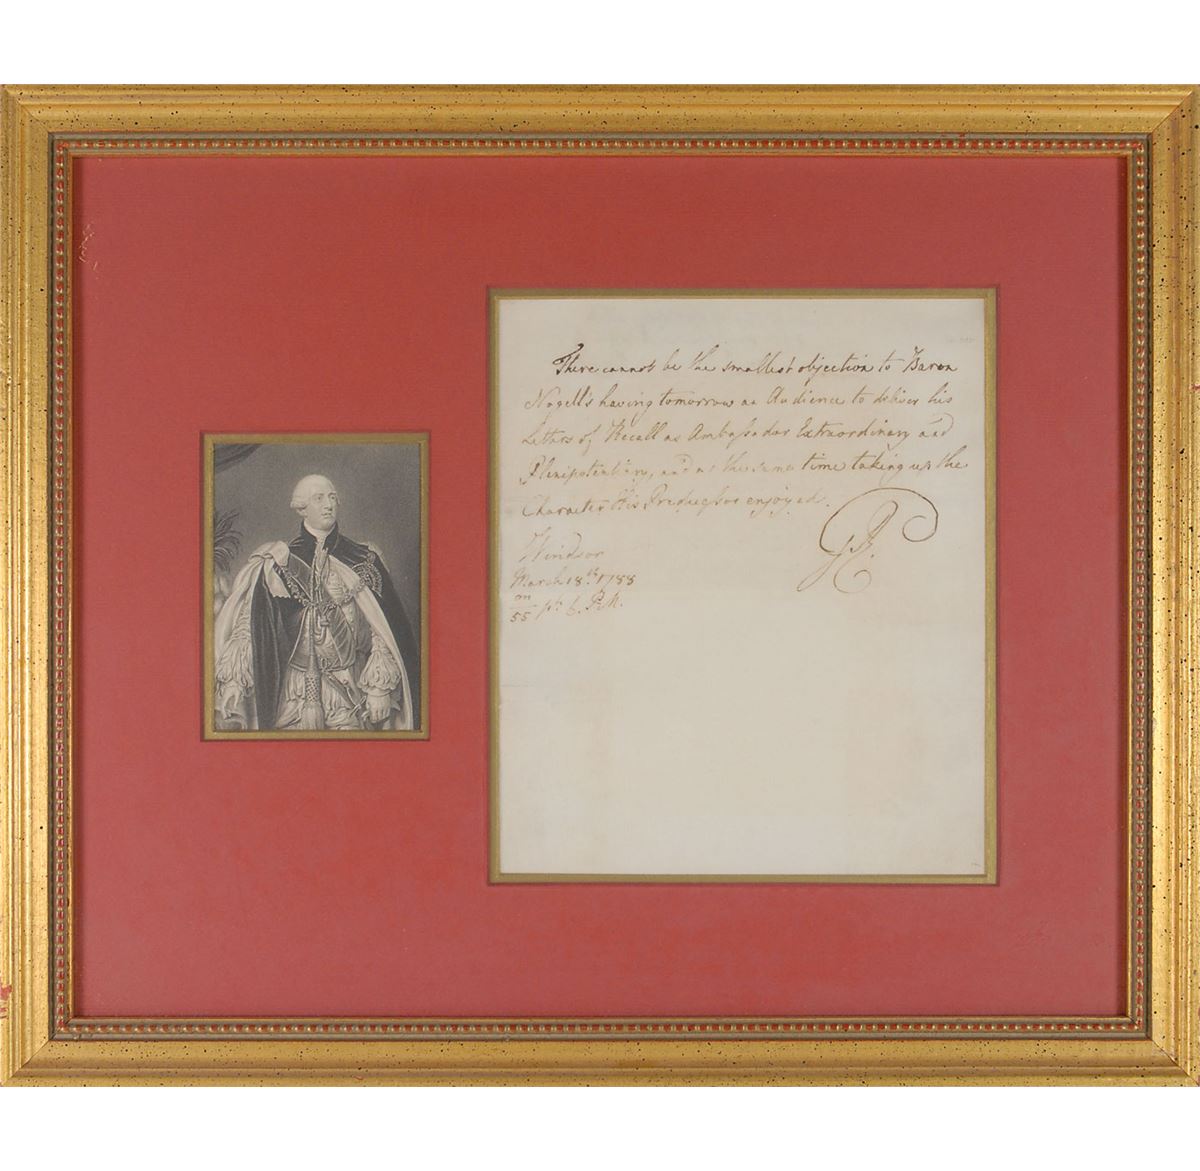 There cannot be the smallest objection to Baron
Nagell's having tomorrow an Audience to deliver his
Letters of Recall as Ambassador Extraordinary and
Plenipotentiary, and at the same time taking up the
Character His Predecessor enjoyed.
GR.
Windsor
March 18th. 1788
m
55 pt. 6. P.M.